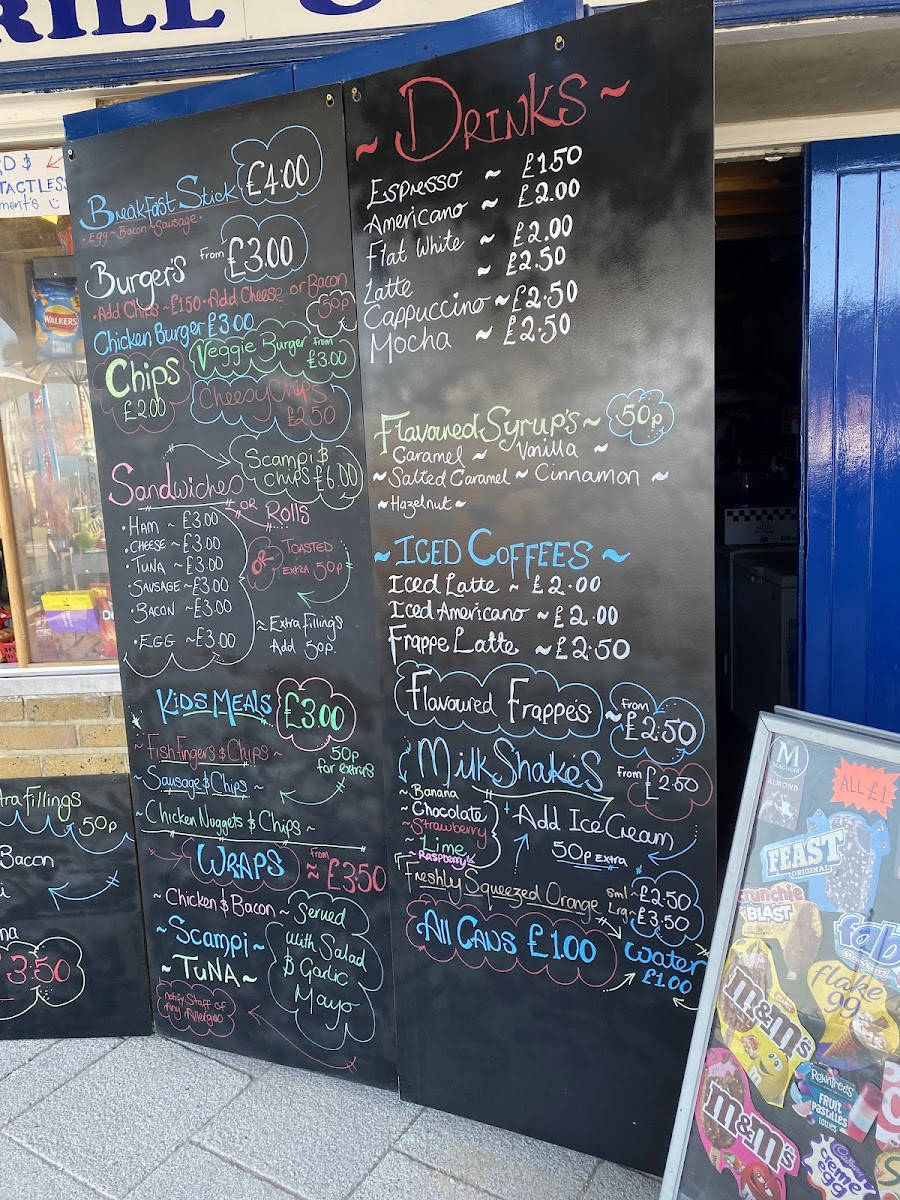 RILL
D &
TACTLESS
ment's
WALKERS
Breakfast Stick £4.00
· Egg ~ Bacon ~ Sausage ·
Burger's From £3.00
· Add Chips ~ £1.50 · Add Cheese or Bacon 50p
Chicken Burger £3.00
Chips £2.00
Veggie Burger from £3.00
Cheesy Chips £2.50
Scampi & Chips £6.00
Sandwiches
OR Rolls
· HAM ~ £3.00
· CHEESE ~ £3.00
· TUNA ~ £3.00
· SAUSAGE ~ £3.00
· BACON ~ £3.00
· EGG ~ £3.00
OR TOASTED
EXTRA 50p
~ Extra fillings
Add 50p.
KIDS MEALS £3.00
50p
for extras
~ Fish fingers & Chips ~
~ Sausage & Chips ~
~ Chicken Nuggets & Chips ~
WRAPS From ~ £3.50
~ Chicken & Bacon ~
~ Scampi ~
~ TUNA ~
Served
with Salad
& Garlic
Mayo
notify Staff of
Any Allergies
~ DRINKS ~
Espresso ~ £1.50
Americano ~ £2.00
Flat White ~ £2.00
Latte ~ £2.50
Cappuccino ~ £2.50
Mocha ~ £2.50
Flavoured Syrup's ~ 50p
Caramel ~ Vanilla ~
~ Salted Caramel ~ Cinnamon ~
~ Hazelnut ~
~ ICED COFFEES ~
Iced Latte ~ £2.00
Iced Americano ~ £2.00
Frappe Latte ~ £2.50
Flavoured Frappe's ~ From £2.50
MilkShakes From £2.50
~ Banana
~ Chocolate
~ Strawberry
~ Lime
~ Raspberry
+ Add Ice Cream
50p Extra
Freshly Squeezed Orange sml ~ £2.50
Lrg ~ £3.50
All Cans £1.00
Water
£1.00
tra fillings
50p
Bacon
na
£3.50
M
MAGNUM
ALMOND
ALL £1
FEAST
ORIGINAL
crunchie
BLAST
fab
Strawberry
flake
99
m&m's
Rowntree's
FRUIT
PASTILLES
lollies
m&m's
Cadbury
creme
egg